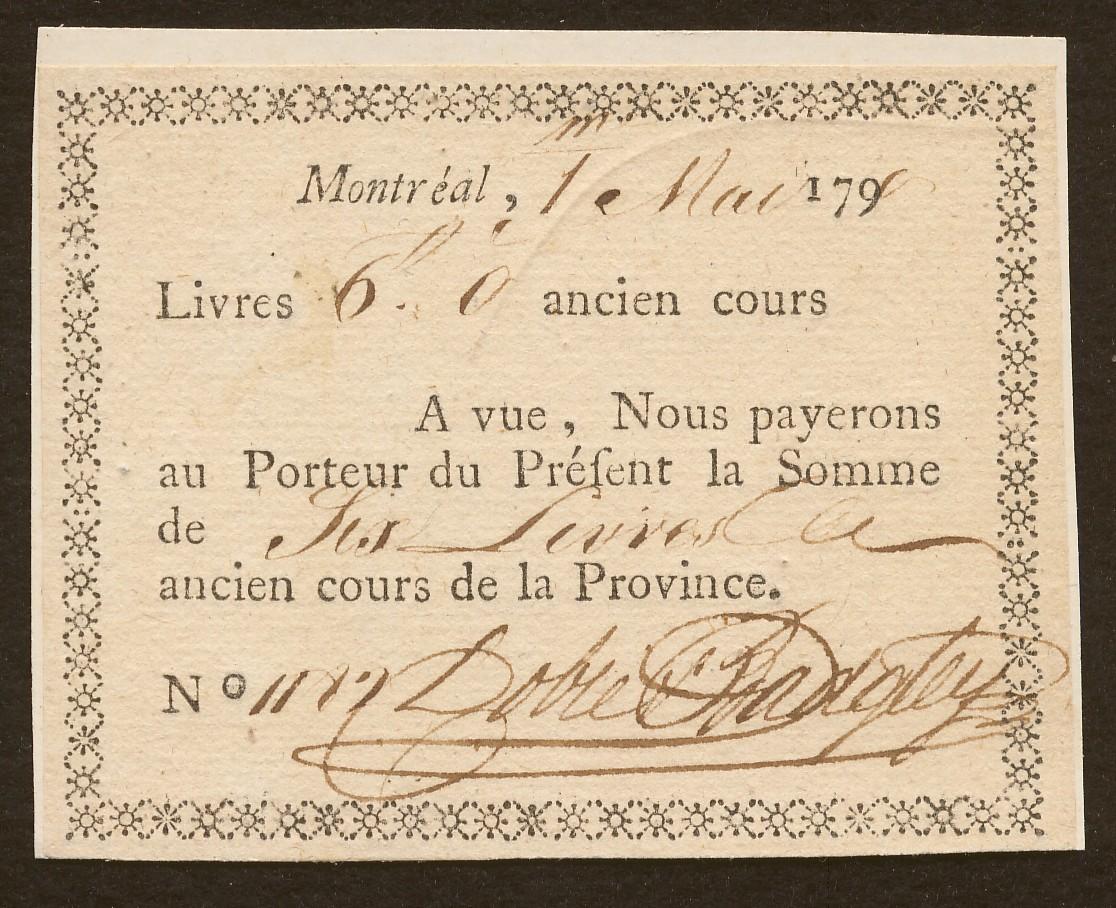 Montréal, 1 Mai 1790
Livres 6. 0 ancien cours
A vue, Nous payerons
au Porteur du Préſent la Somme
de Six Livres
ancien cours de la Province.
Nº 1187 Dobie & Badgley